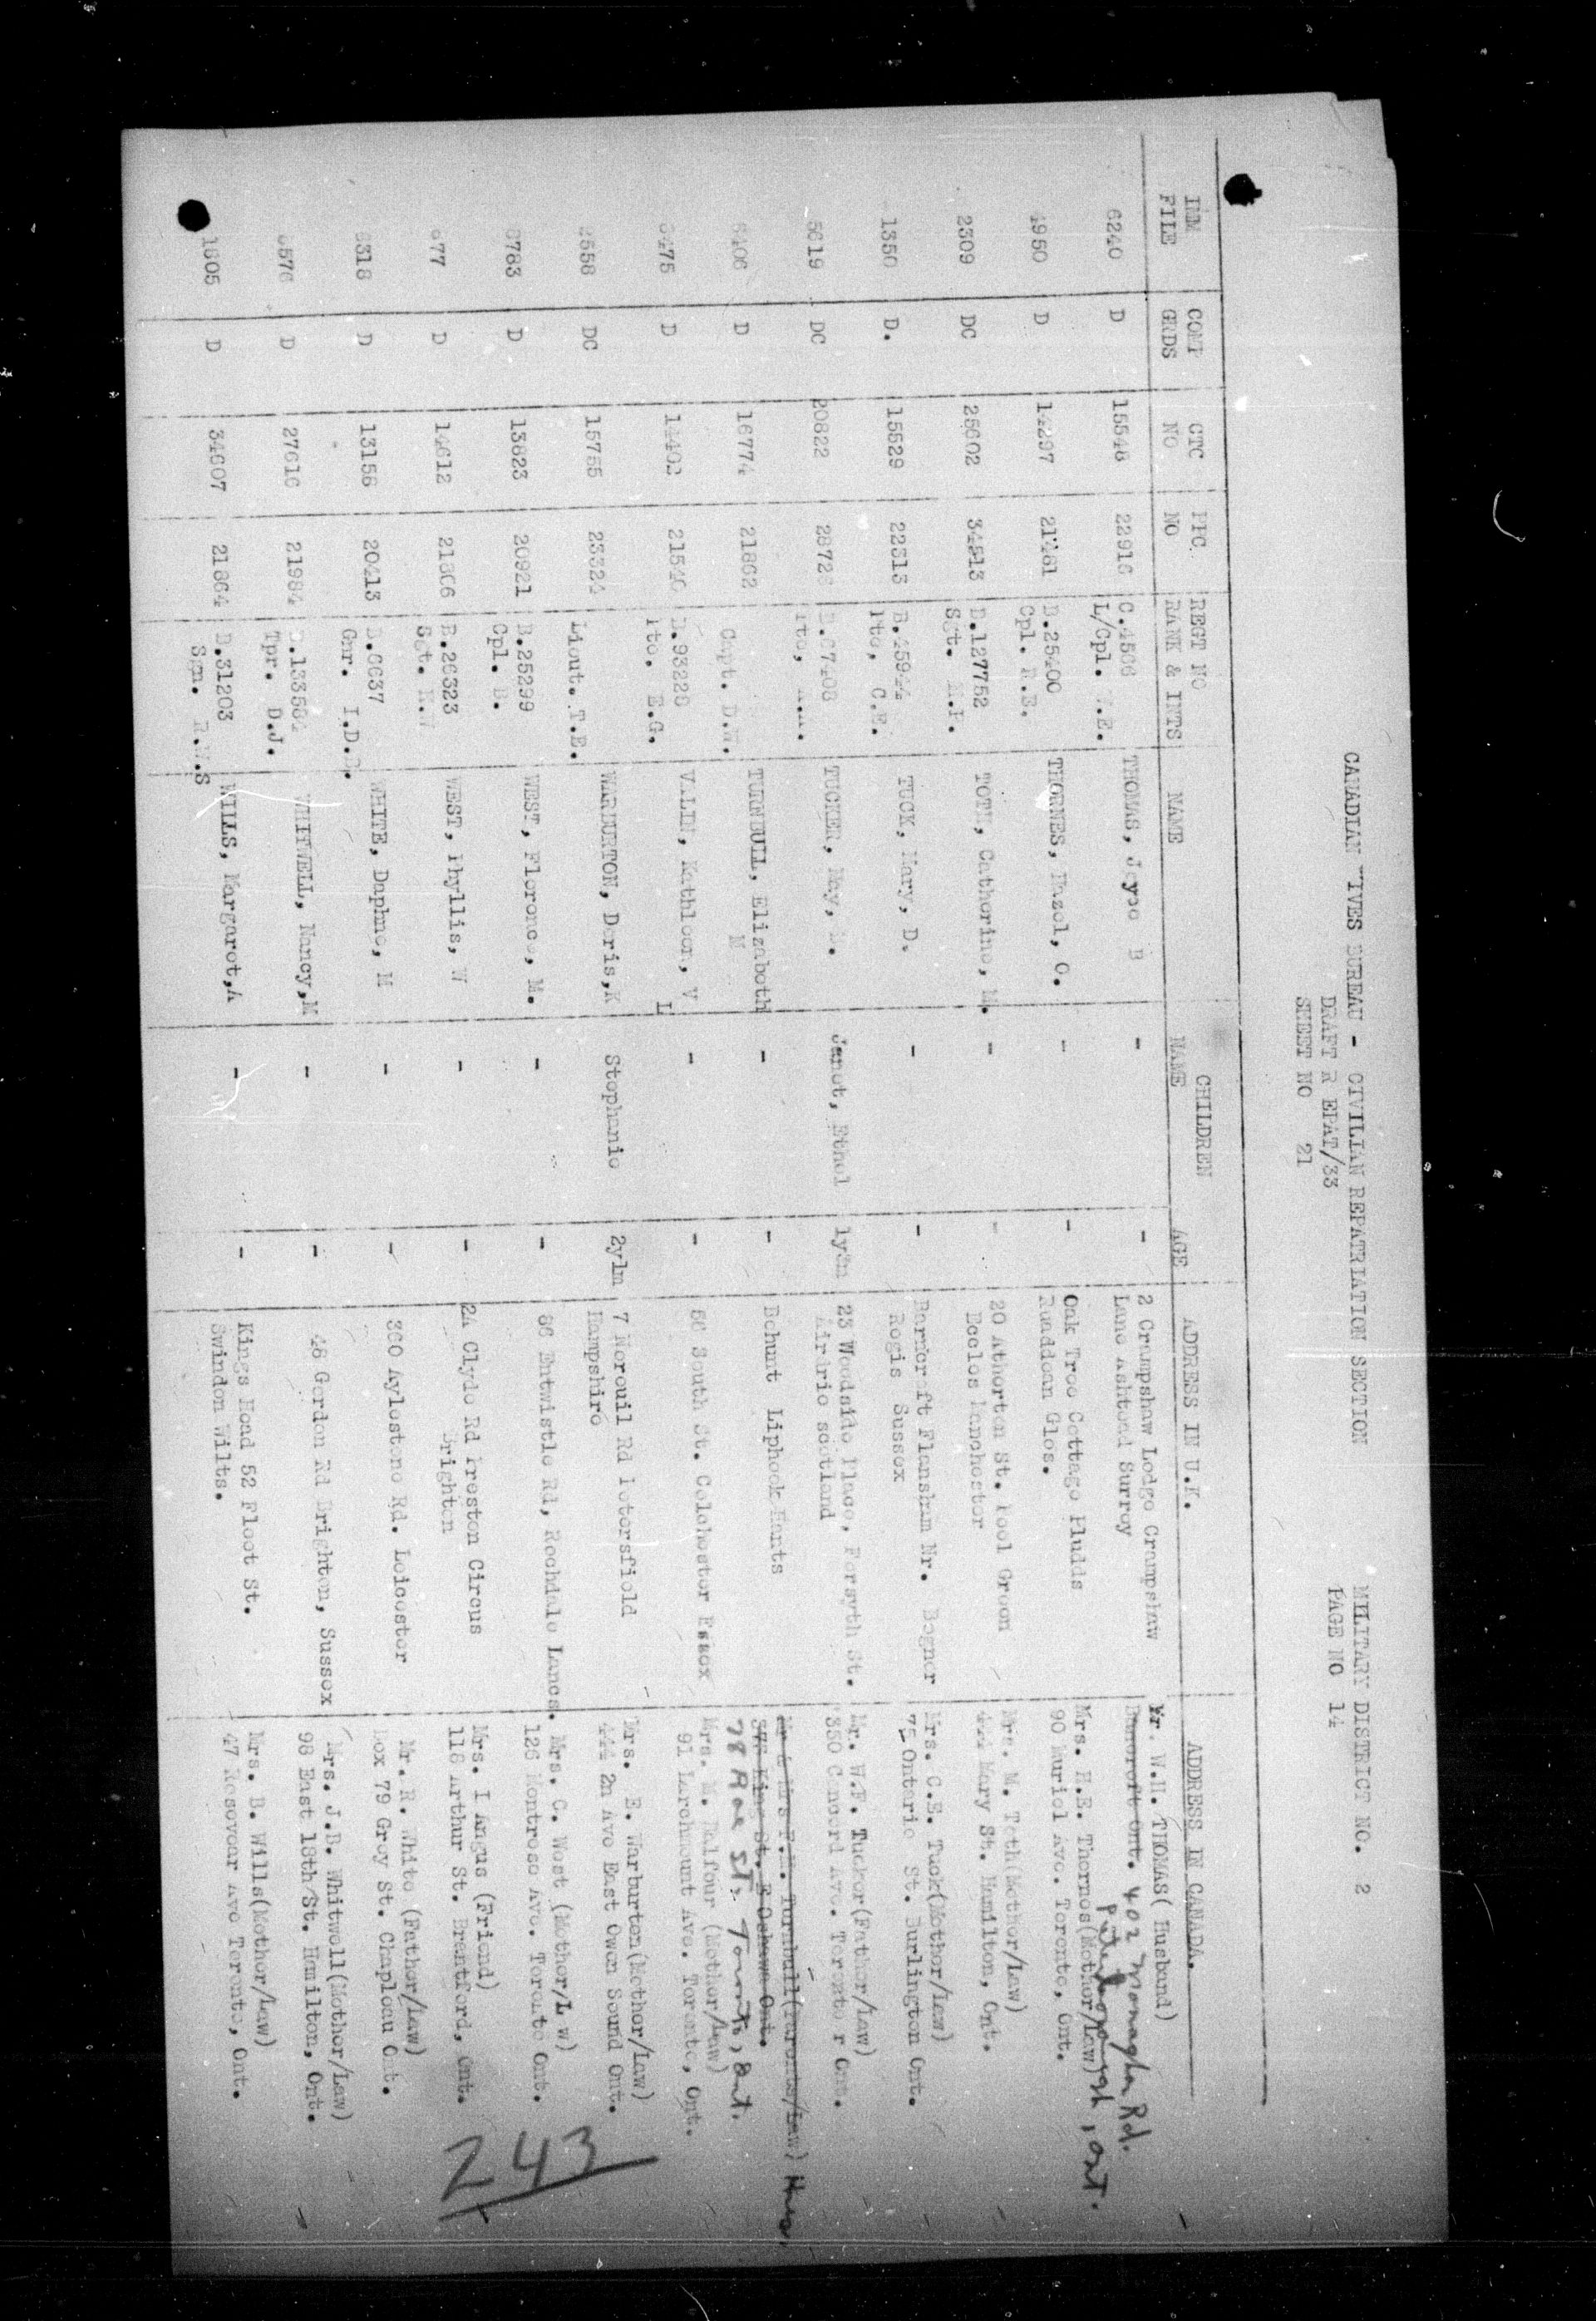 CANADIAN WIVES BUREAU - CIVILIAN REPATRIATION SECTION MILITARY DISTRICT NO. 2
DRAFT R EPAT/33 PAGE NO 14
SHEET NO 21
IMM COMP CTC PPC REGT NO NAME CHILDREN ADDRESS IN U.K. ADDRESS IN CANADA.
FILE GRDS NO NO RANK & INTS NAME AGE
6240 D 15548 22916 C.4566 THOMAS, Joyce B - - 2 Crampshaw Lodge Crampshaw Mr. W.H. THOMAS( Husband)
L/Cpl. Lane Ashtead Surrey Bancroft Ont. 402 Monaghan Rd.
Peterborough, Ont.
4950 D 14297 21481 B.25400 THORNES, Hazel, O. - - Oak Tree Cottage Pludds Mrs. H.E. Thornes(Mother/Law)
Cpl. R.E. Ruaddean Glos. 90 Muriel Ave. Toronto, Ont.
2309 DC 25602 34513 B.127752 TOTH, Catherine, M. - - 20 Athorton St. Peel Green Mrs. M. Toth(Mother/Law)
Sgt. Eccles Manchester 444 Mary St. Hamilton, Ont.
1350 D. 15529 22313 B.45944 TUCK, Mary, D. - - Barncroft Flansham Nr. Bognor Mrs. C.E. Tuck(Mother/Law)
Pte, C.E. Regis Sussex 75 Ontario St. Burlington Ont.
5619 DC 20822 28726 B.67408 TUCKER, May, Janet, Ethel 1y3m 23 Woodside Place, Forsyth St. Mr. W.F. Tucker(Father/Law)
Pte, Airdrie scotland 350 Concord Ave. Toronto r Ont.
6406 D 16774 21862 TURNBULL, Elizabeth - - Bohunt Liphook Hants Mr & Mrs F. Turnbull(Parents/Law)
Capt. D.W. M King St. E Oshawa Ont.
78 Roe St, Toronto, Ont.
6475 D 14402 21540 B.93228 VALIN, Kathleen, V - - 56 South St. Colchester Essex Mrs. M. Balfour (Mother/Law)
Pte. E.G. L 91 Larchmount Ave. Toronto, Ont.
2558 DC 15755 23324 WARBURTON, Doris,K Stephanie 2y1m 7 Noreuil Rd Petersfield Mrs. E. Warburton(Mother/Law)
Lieut. T.E. Hampshire 444 2n Ave East Owen Sound Ont.
8783 D 13823 20921 B.25299 WEST, Florence, M. - - 86 Entwistle Rd, Rochdale Lancs. Mrs. C. West (Mother/L w)
Cpl. B. 126 Montrose Ave. Toronto Ont.
677 D 14612 21806 B.26323 WEST, Phyllis, W - - 2A Clyde Rd Preston Circus Mrs. I Angus (Friend)
Sgt. H.W Brighton 118 Arthur St. Brantford, Ont.
6318 D 13156 20413 B.6637 WHITE, Daphne, M - - 360 Aylestone Rd. Leicester Mr. R. White (Father/Law)
Gnr. I.D. Box 79 Grey St. Chapleau Ont.
6576 D 27616 21984 WHITWELL, Nancy,M - - 48 Gordon Rd Brighton, Sussex Mrs. J.B. Whitwell(Mother/Law)
Tpr. D.J. 98 East 18th St. Hamilton, Ont.
1805 D 34607 21864 B.31203 WILLS, Margaret,A - - Kings Head 52 Fleet St. Mrs. B. Wills(Mother/Law)
Sgn. Swindon Wilts. 47 Rosovear Ave Toronto, Ont.
243